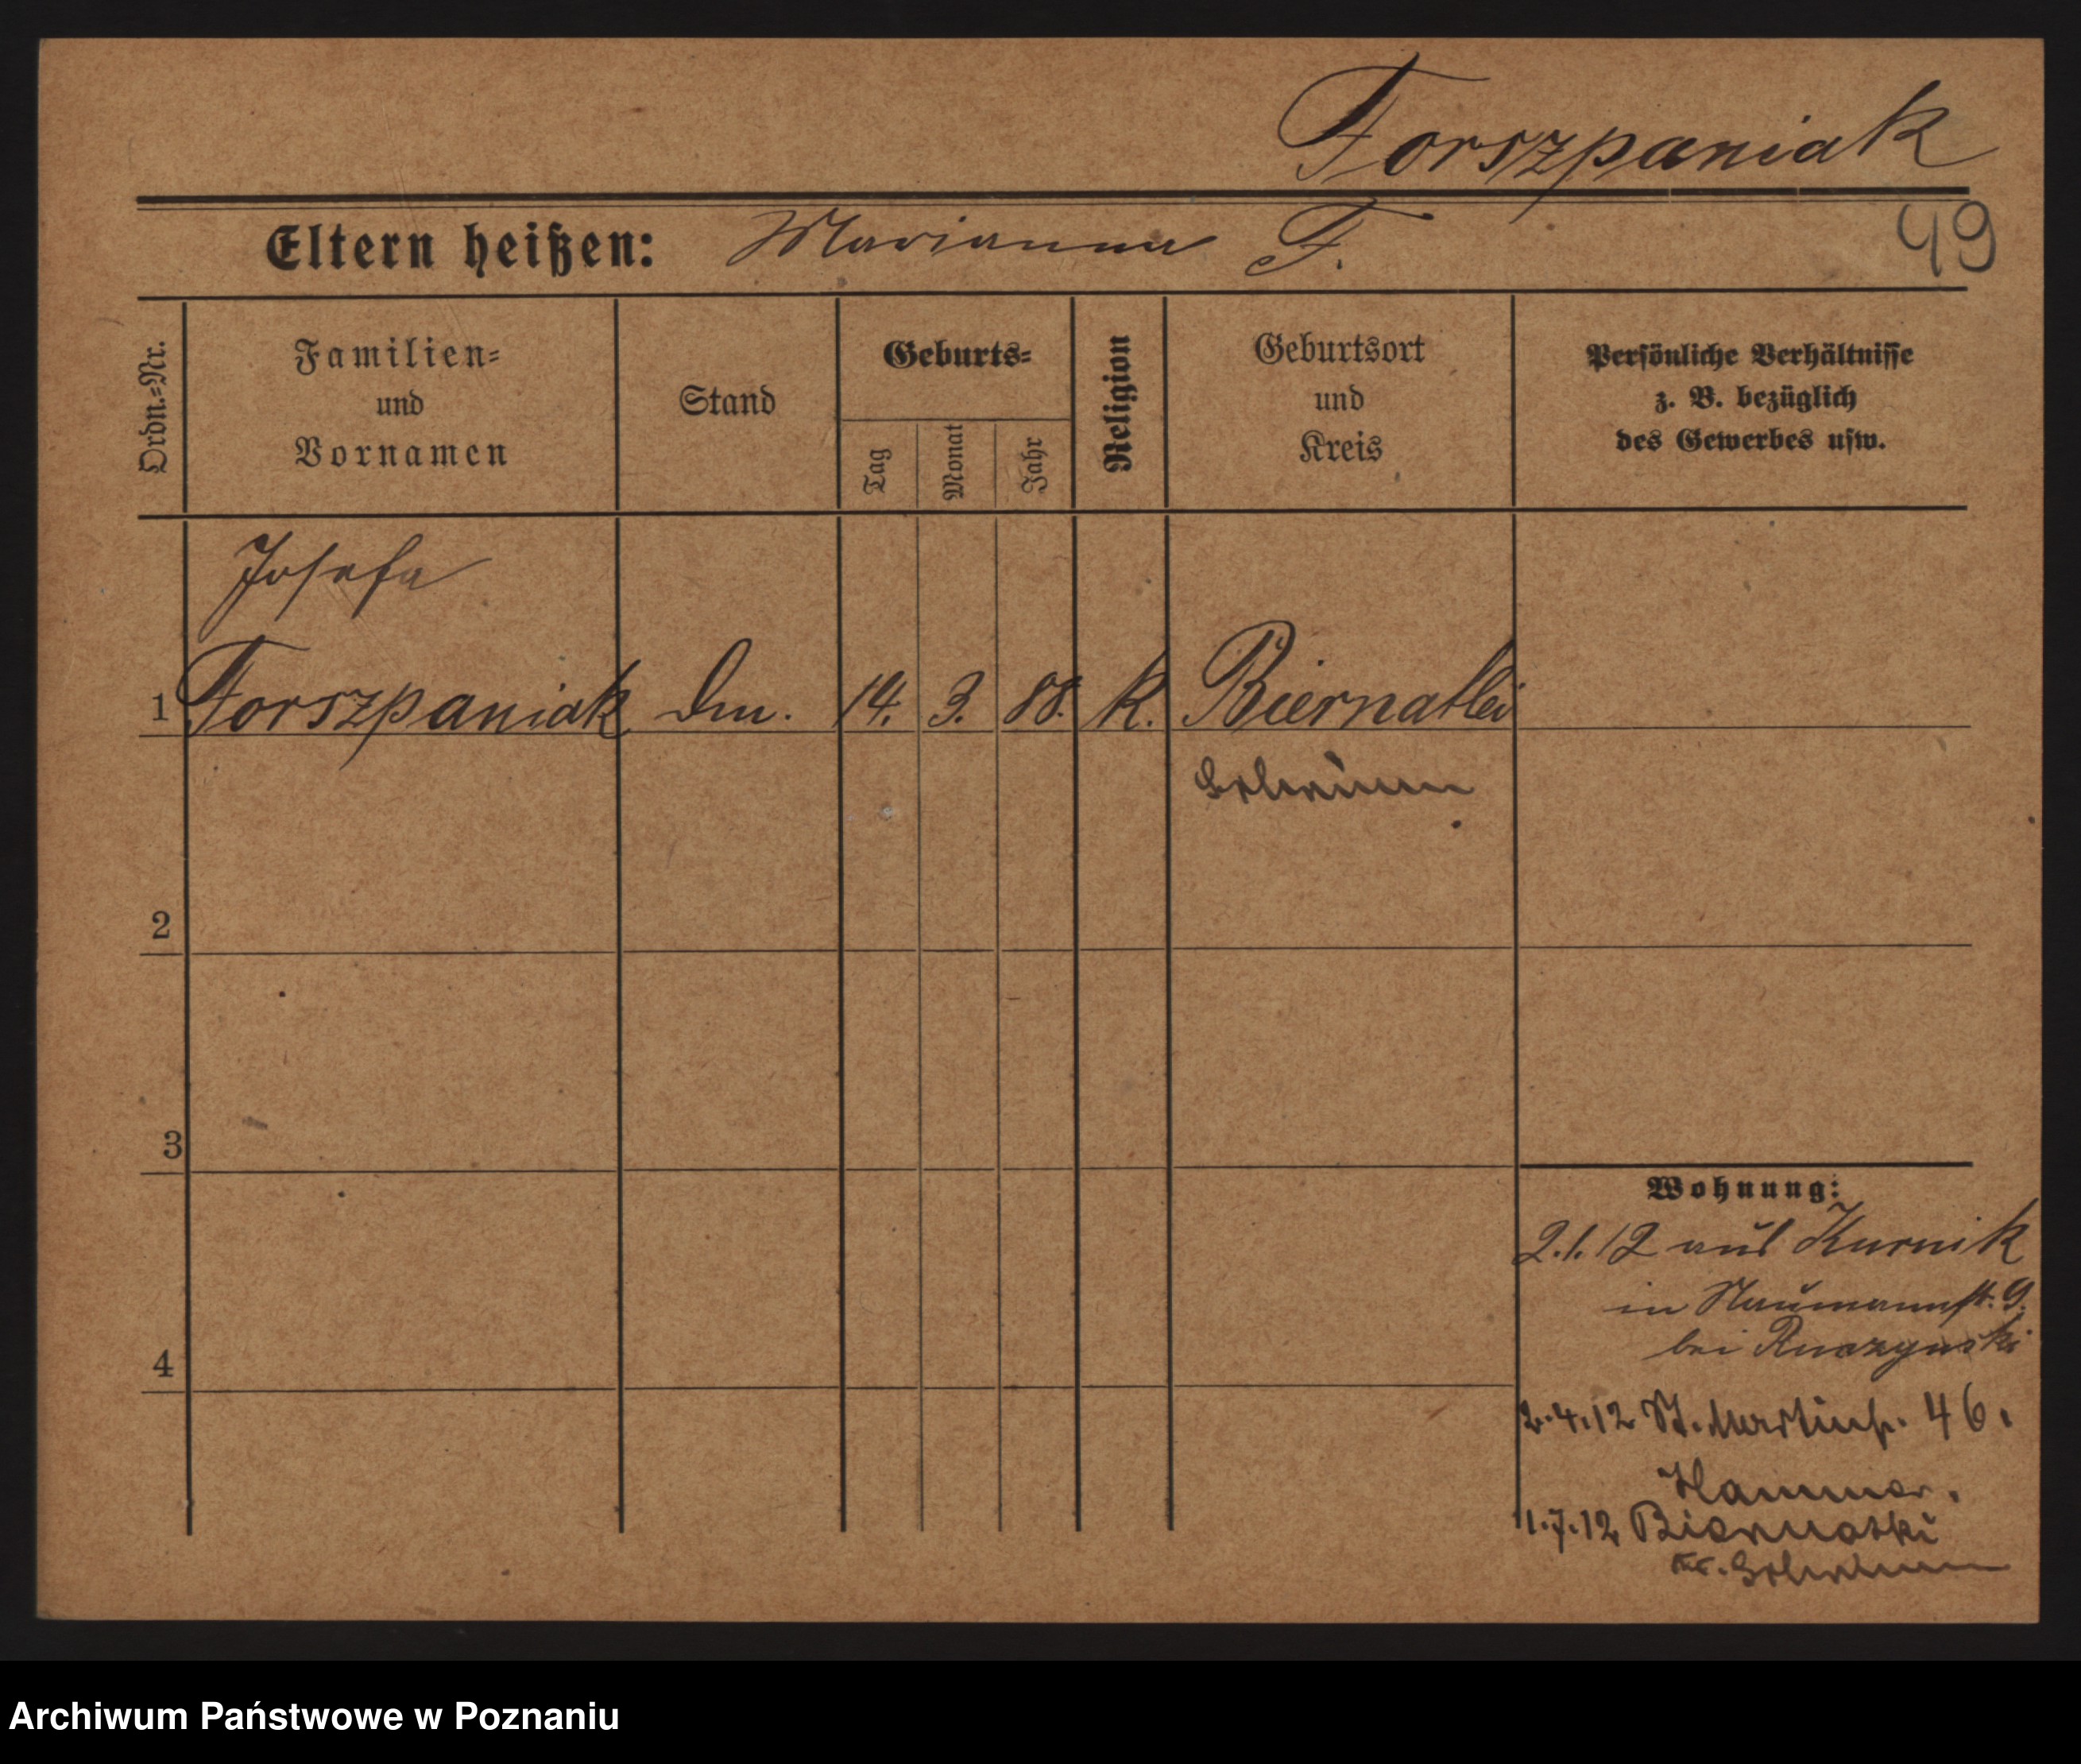 Forszpaniak
Eltern heißen: Marianna F.
49
Ordn.=Nr.
Familien=
und
Vornamen
Stand
Geburts=
Tag
Monat
Jahr
Religion
Geburtsort
und
Kreis
Persönliche Verhältnisse
z. B. bezüglich
des Gewerbes usw.
Josefa
1 Forszpaniak Dm. 14. 3. 88. K. Biernatki
Schrimm
2
3
4
Wohnung:
2.1.12 aus Kurnik
in Naumannst. 9.
bei
2.4.12 St. Martinst. 46.
Hammer.
1.7.12 Biernatki
Kr. Schrimm
Archiwum Państwowe w Poznaniu